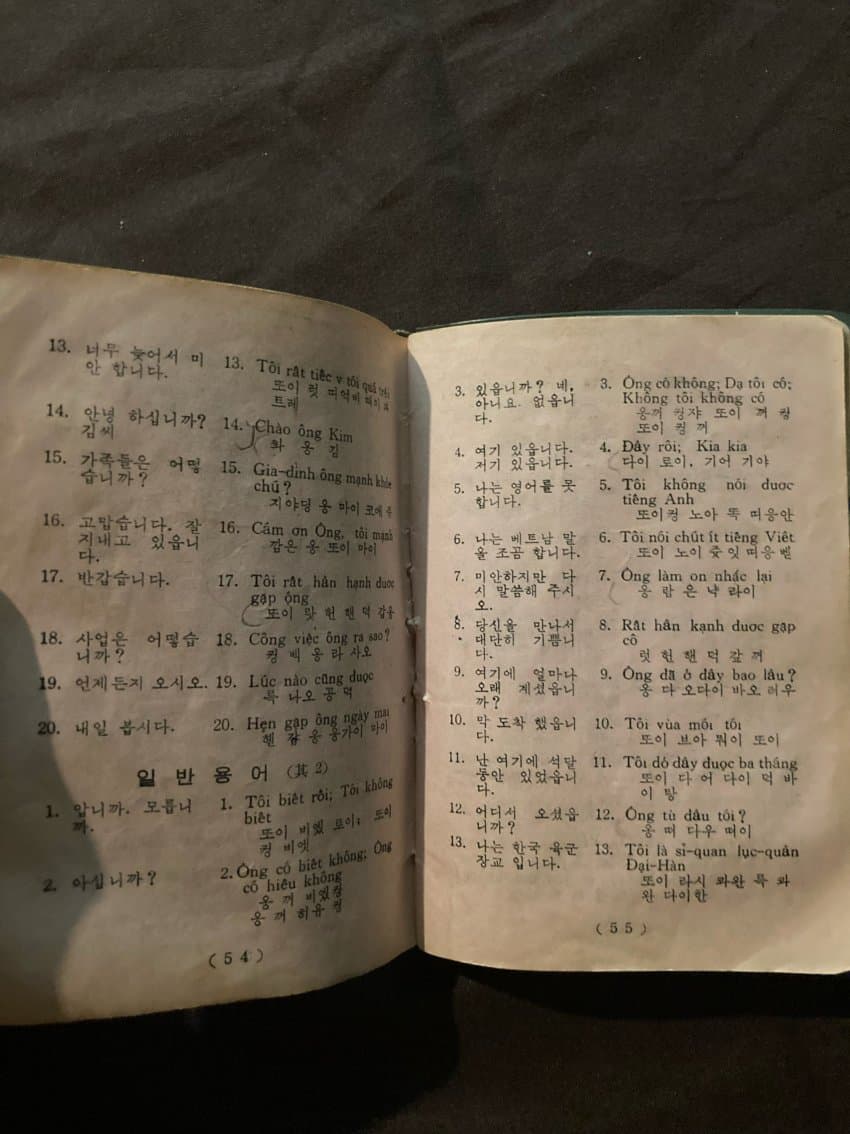 13. 너무 늦어서 미
안 합니다.
13. Tôi rất tiếc v tôi quá trễ
또이 럿
트레
14. 안녕 하십니까?
김씨
14. Chào ông Kim
챠 옹 김
15. 가족들은 어떻
습니까?
15. Gia-dình ông mạnh khỏe
chứ?
지야딩 옹 마이 코애
16. 고맙습니다. 잘
지내고 있읍니
다.
16. Cám ơn Ông, tôi mạnh
깜은 옹 또이 마이
17. 반갑습니다.
17. Tôi rât hân hạnh duoc
gặp ộng
또이 랏 헌 핸 덕 갑옹
18. 사업은 어떻습
니까?
18. Công việc ông ra sao?
컹 벡 옹 라 사오
19. 언제든지 오시오.
19. Lúc nào cũng duọc
륵 나오 꽁 덕
20. 내일 봅시다.
20. Hẹn gặp ông ngày mai
핸 갑 옹 응가이 마이
일 반 용 어 (其 2)
1. 압니까. 모릅니
까.
1. Tôi biêt rồi; Tôi không
biêt
또이 비엤 로이; 또이
컹 비엣
2. 아십니까?
2. Ông có biêt không; Ông
có hiểu không
옹 꺼 비엤컹
옹 꺼 히유 컹
(54)
3. 있읍니까? 네,
아니요. 없읍니
다.
3. Ông cô không; Dạ tôi cô;
Không tôi không cô
옹꺼 컹쟈 또이 꺼 컹
또이 컹 꺼
4. 여기 있읍니다.
저기 있읍니다.
4. Đây rôi; Kia kia
다이 로이, 기어 기야
5. 나는 영어를 못
합니다.
5. Tôi không nói duoc
tiêng Anh
또이컹 노아 똑 띠응안
6. 나는 베트남 말
을 조곰 합니다.
6. Tôi nôi chút ít tiêng Viêt
또이 노이 줒잇 띠응 벨
7. 미안하지만 다
시 말씀해 주시
오.
7. Ông làm on nhắc lại
옹 람 은 냑 라이
8. 당신을 만나서
대단히 기쁩니
다.
8. Rât hân kạnh duơc gạp
cô
럿 헌 핸 덕 갚 꺼
9. 여기에 얼마나
오래 계셨읍니
까?
9. Ông dã ở dây bao lâu?
옹 다 오다이 바오 러우
10. 막 도착 했읍니
다.
10. Tôi vùa môi tôi
또이 브아 뭐이 또이
11. 난 여기에 석달
동안 있었읍니
다.
11. Tôi dó dây duọc ba tháng
또이 다 어 다이 덕 바
이 탕
12. 어디서 오셨읍
니까?
12. Ông tù dâu tôi?
옹 떠 다우 떠이
13. 나는 한국 육군
장교 입니다.
13. Tôi là sĩ-quan lục-quân
Đại-Hàn
또이 라시 콰완 륵 콰
완 다이한
(55)